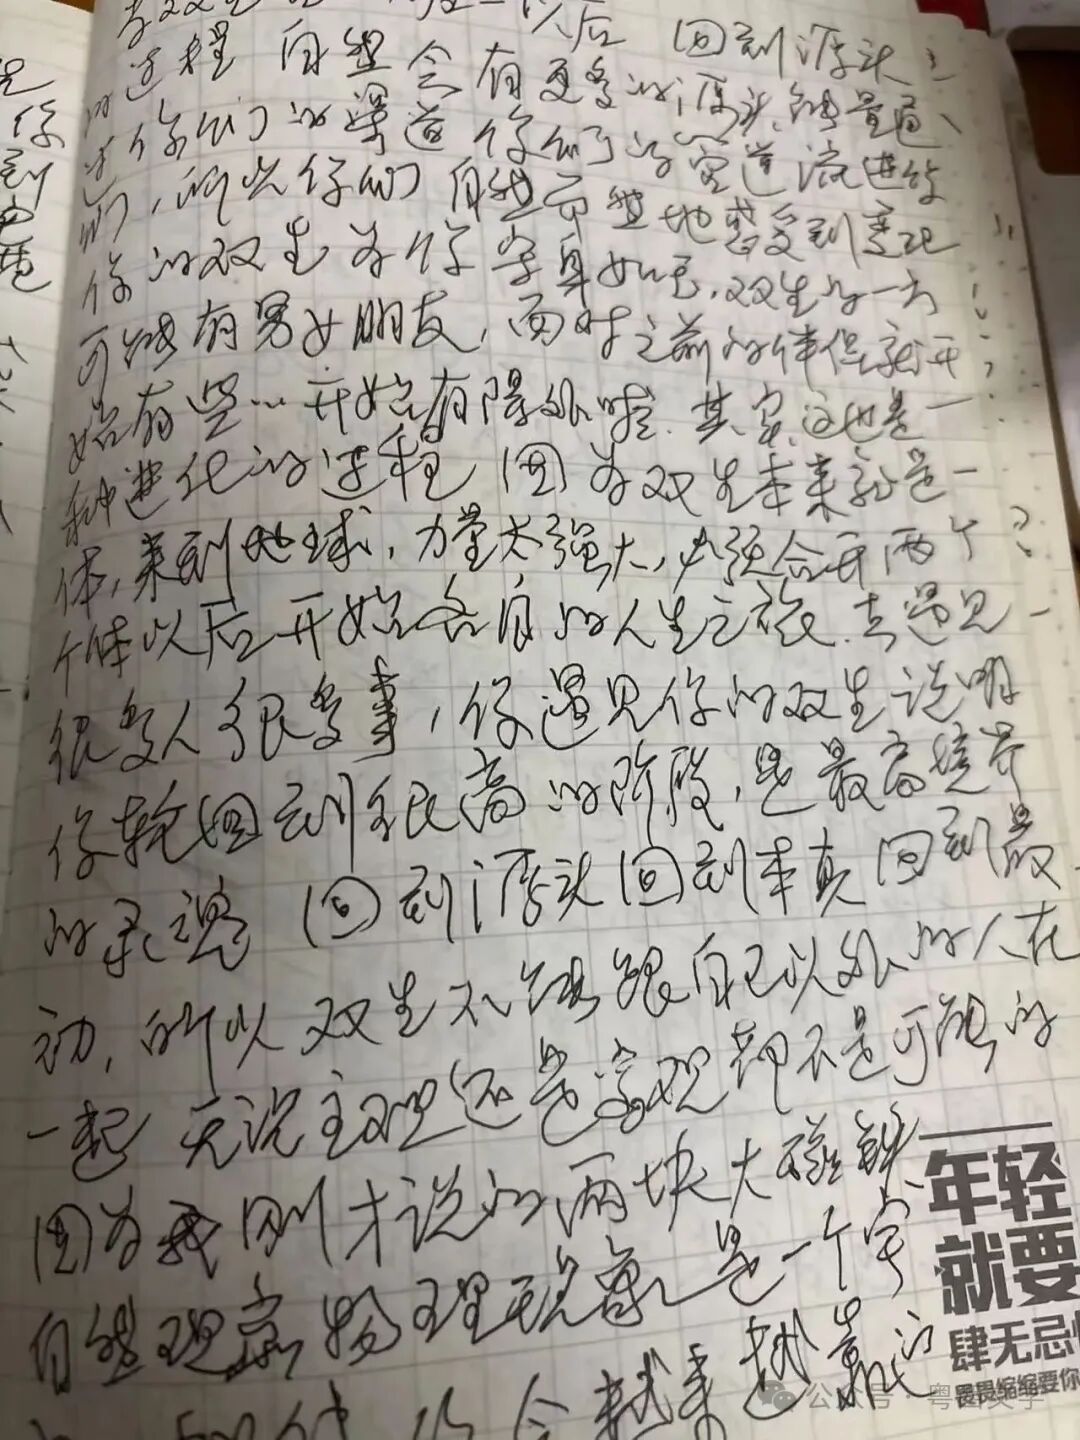 以后 回到源头
的过程 自然会有更多的源头能量通
过你们的渠道 你们的管道流进你
们，所以你们自然而然地感受到变化
你的双生为你守身如玉，双生的一方
可能有男女朋友，面对之前的伴侣就开
始有些…开始有障碍啦.其实这也是一
种进化的过程 因为双生本来就是一
体，来到地球，力量太强大，必须分开两个
个体以后开始各自的人生之旅.去遇见
很多人很多事，你遇见你的双生说明
你轮回到很高的阶段，是最高境界
的灵魂 回到源头回到本真回到最
初，所以双生不能跟自己以外的人在
一起 无论主观还是客观都不是可能的
因为我刚才说的两块大磁铁
自然现象物理现象是一个宇
会越来越靠近
年轻
就要
肆无忌
畏畏缩缩要你
公众号·粤西文学
你
到